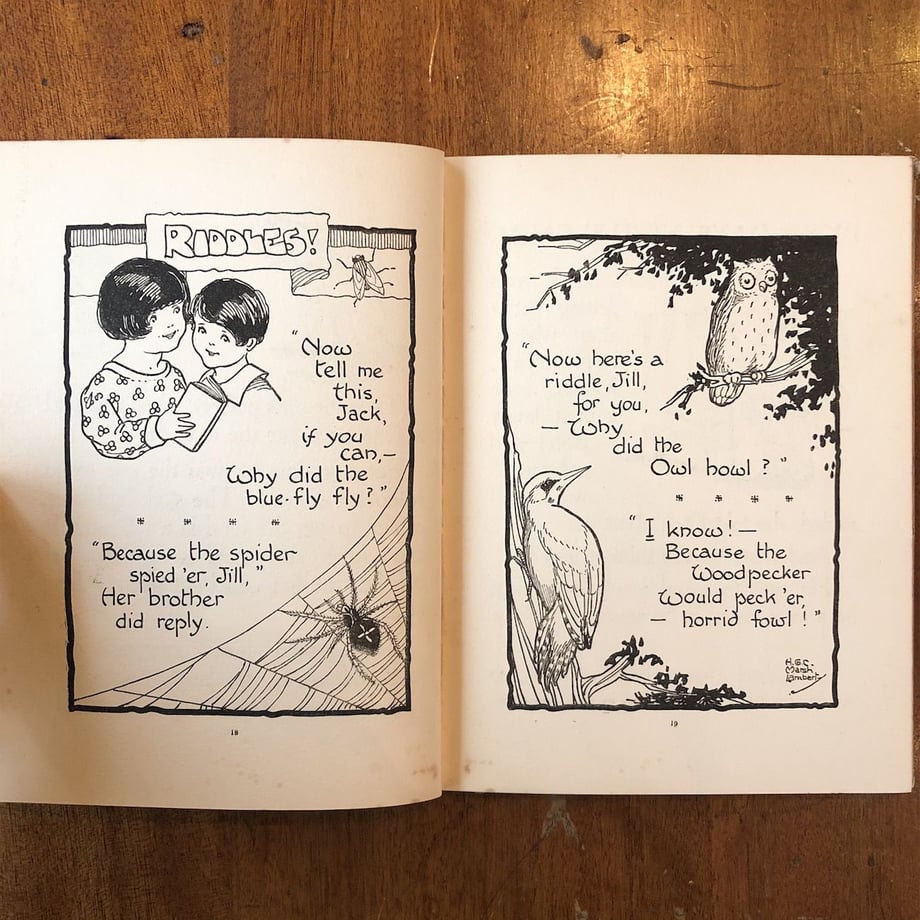 RIDDLES!
"Now
tell me
this,
Jack,
if you
can,—
Why did the
blue-fly fly?"
"Because the spider
spied 'er, Jill,"
Her brother
did reply.
18
"Now here's a
riddle, Jill,
for you,
— Why
did the
Owl howl?"
"I know!—
Because the
Woodpecker
Would peck 'er,
— horrid fowl!"
H.G.C.
Marsh
Lambert
19